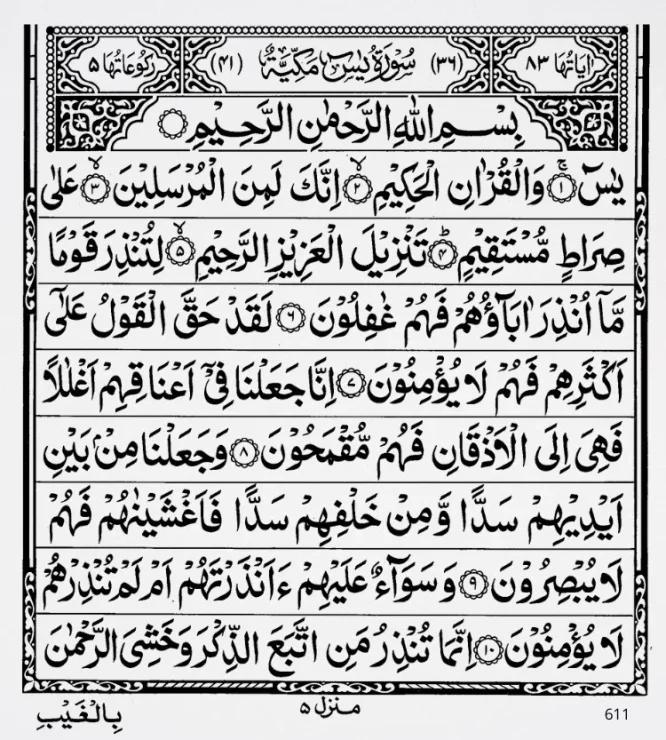 اٰيَاتُهَا ٨٣ (٣٦) سُوْرَةُ يٰسٓ مَكِّيَّةٌ (٤١) رُكُوْعَاتُهَا ٥
بِسْــمِ اللهِ الرَّحْمٰنِ الرَّحِيْمِ
يٰسٓ ۝١ وَالْقُرْاٰنِ الْحَكِيْمِ ۝٢ اِنَّكَ لَمِنَ الْمُرْسَلِيْنَ ۝٣ عَلٰى
صِرَاطٍ مُّسْتَقِيْمٍ ۝٤ تَنْزِيْلَ الْعَزِيْزِ الرَّحِيْمِ ۝٥ لِتُنْذِرَ قَوْمًا
مَّآ اُنْذِرَ اٰبَآؤُهُمْ فَهُمْ غٰفِلُوْنَ ۝٦ لَقَدْ حَقَّ الْقَوْلُ عَلٰٓى
اَكْثَرِهِمْ فَهُمْ لَا يُؤْمِنُوْنَ ۝٧ اِنَّا جَعَلْنَا فِيْٓ اَعْنَاقِهِمْ اَغْلٰلًا
فَهِيَ اِلَى الْاَذْقَانِ فَهُمْ مُّقْمَحُوْنَ ۝٨ وَجَعَلْنَا مِنْۢ بَيْنِ
اَيْدِيْهِمْ سَدًّا وَّمِنْ خَلْفِهِمْ سَدًّا فَاَغْشَيْنٰهُمْ فَهُمْ
لَا يُبْصِرُوْنَ ۝٩ وَسَوَآءٌ عَلَيْهِمْ ءَاَنْذَرْتَهُمْ اَمْ لَمْ تُنْذِرْهُمْ
لَا يُؤْمِنُوْنَ ۝١٠ اِنَّمَا تُنْذِرُ مَنِ اتَّبَعَ الذِّكْرَ وَخَشِيَ الرَّحْمٰنَ
بِالْغَيْبِ منزل ٥ 611